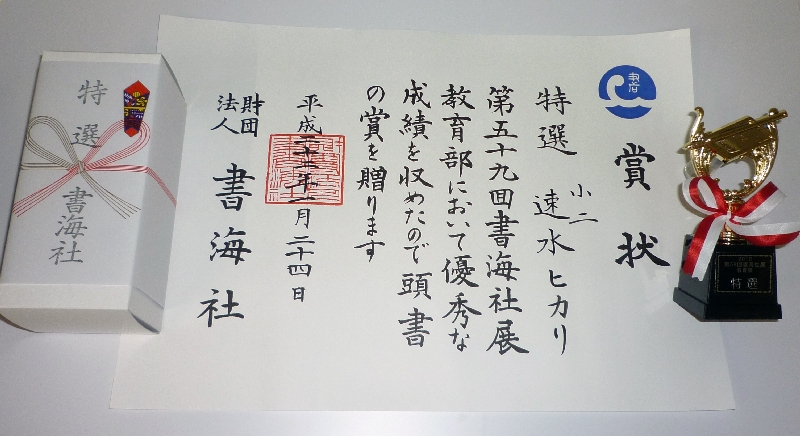 賞状
特選 小二 速水ヒカリ
第五十九回書海社展
教育部において優秀な
成績を収めたので頭書
の賞を贈ります
平成二十二年一月二十四日
財団
法人
書海社
特選
書海社
特選